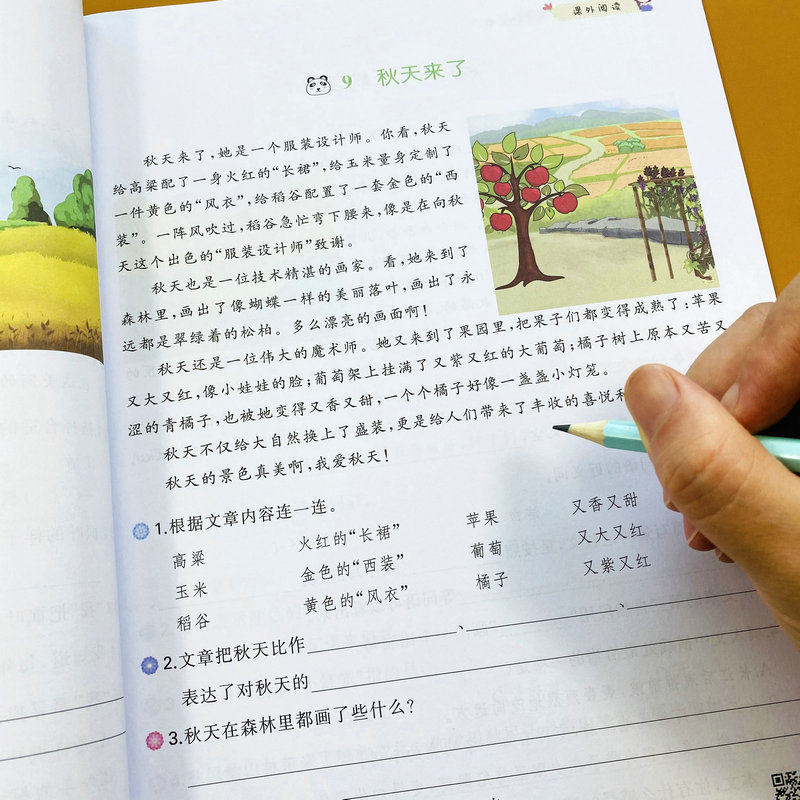 课外阅读
9 秋天来了
秋天来了，她是一个服装设计师。你看，秋天
给高粱配了一身火红的“长裙”，给玉米量身定制了
一件黄色的“风衣”，给稻谷配置了一套金色的“西
装”。一阵风吹过，稻谷急忙弯下腰来，像是在向秋
天这个出色的“服装设计师”致谢。
秋天也是一位技术精湛的画家。看，她来到了
森林里，画出了像蝴蝶一样的美丽落叶，画出了永
远都是翠绿着的松柏。多么漂亮的画面啊！
秋天还是一位伟大的魔术师。她又来到了果园里，把果子们都变得成熟了：苹果
又大又红，像小娃娃的脸；葡萄架上挂满了又紫又红的大葡萄；橘子树上原本又苦又
涩的青橘子，也被她变得又香又甜，一个个橘子好像一盏盏小灯笼。
秋天不仅给大自然换上了盛装，更是给人们带来了丰收的喜悦
秋天的景色真美啊，我爱秋天！
1.根据文章内容连一连。
高粱 火红的“长裙” 苹果 又香又甜
玉米 金色的“西装” 葡萄 又大又红
稻谷 黄色的“风衣” 橘子 又紫又红
2.文章把秋天比作____________、____________、____________
表达了对秋天的____________
3.秋天在森林里都画了些什么？